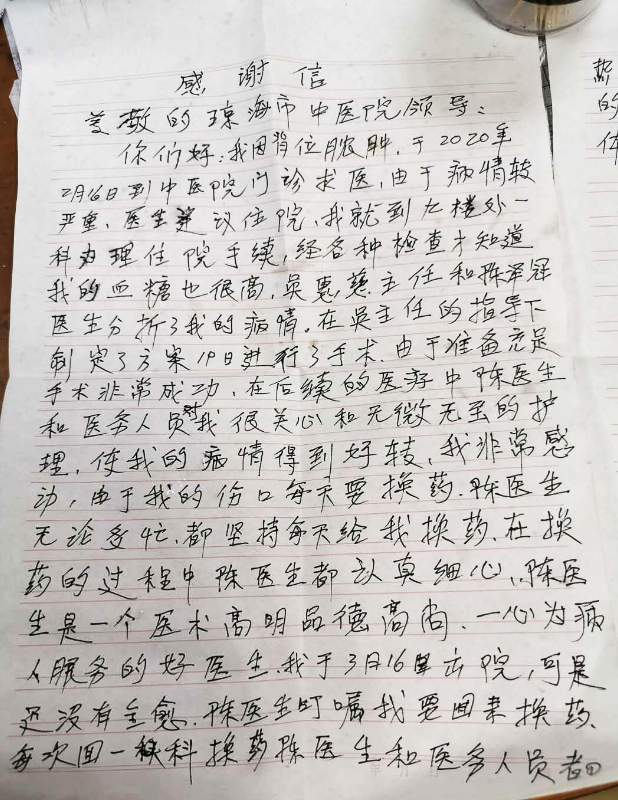 感谢信
尊敬的琼海市中医院领导：
你们好：我因背位脓肿，于2020年
2月16日到中医院门诊求医，由于病情较
严重，医生建议住院，我就到九楼外一
科办理住院手续，经各种检查才知道
我的血糖也很高，吴惠慈主任和陈泽冠
医生分折了我的病情，在吴主任的指导下
制定了方案19日进行了手术.由于准备充足
手术非常成功，在后续的医疗中陈医生
和医务人员对我很关心和无微无至的护
理，使我的病情得到好转，我非常感
动，由于我的伤口每天要换药.陈医生
无论多忙.都坚持每天给我换药.在换
药的过程中陈医生都认真细心，陈医
生是一个医术高明品德高尚.一心为病
人服务的好医生.我于3月16日出院，可是
还没有全愈.陈医生叮嘱我要回来换药.
每次回一科换药陈医生和医务人员都
帮
的
体